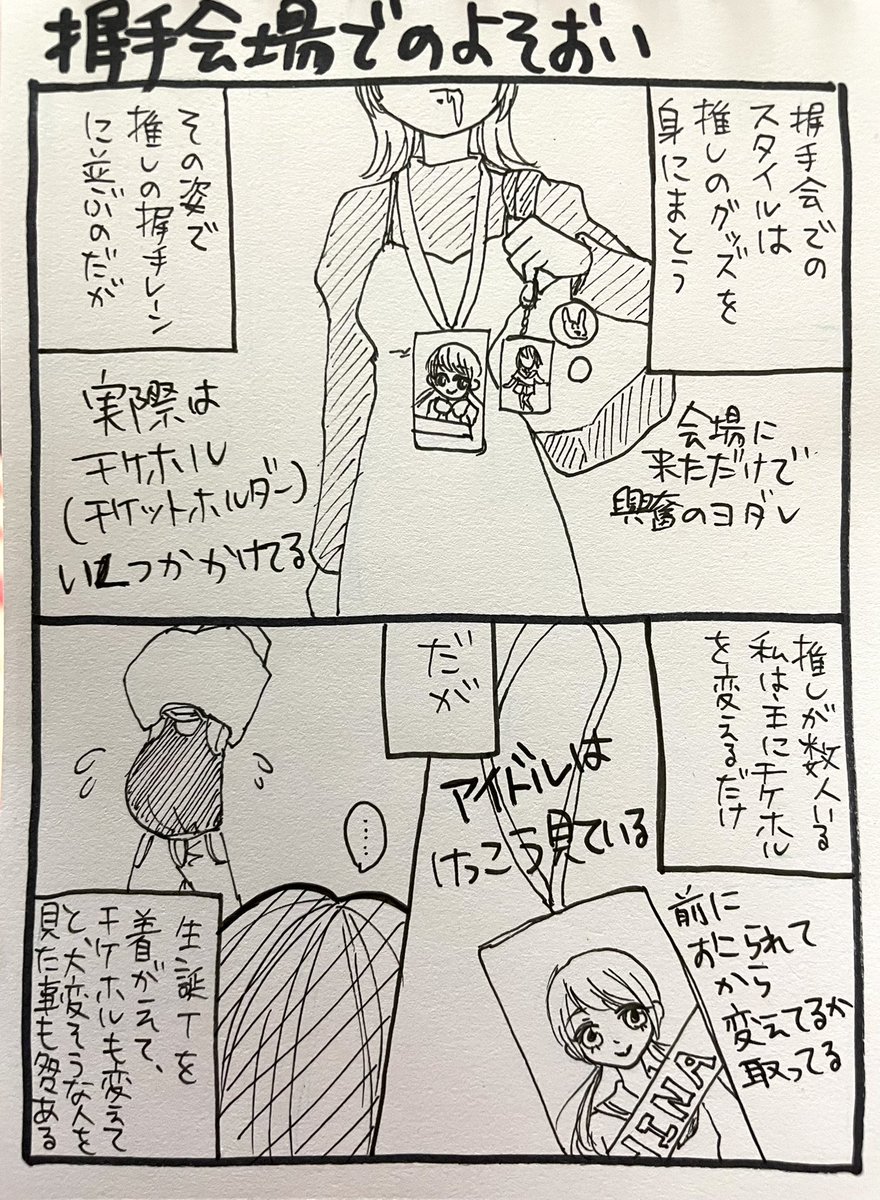 握手会場でのよそおい
握手会での
スタイルは
推しのグッズを
身にまとう
その姿で
推しの握手レーン
に並ぶのだが
会場に
来ただけで
興奮のヨダレ
実際は
チケホル
(チケットホルダー)
いくつかかけてる
推しが数人いる
私は主にチケホル
を変えるだけ
だが
アイドルは
けっこう見ている
前に
おこられて
から
変えてるか
取ってる
HINA
……
生誕Tを
着がえて、
チケホルも変えて
と、大変そうな人を
見た事も多々ある